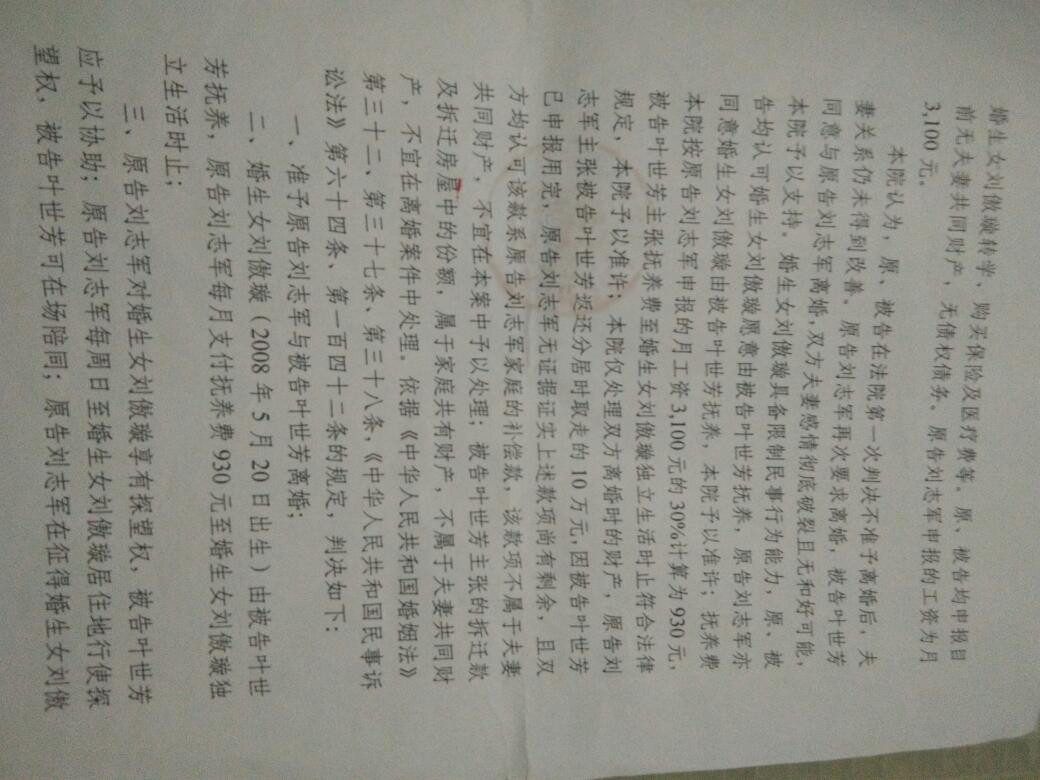 婚生女刘傲璇转学，购买保险及医疗费等。原、被告均申报目
前无夫妻共同财产，无债权债务。原告刘志军申报的工资为月
3,100元。
本院认为，原、被告在法院第一次判决不准予离婚后，夫
妻关系仍未得到改善。原告刘志军再次要求离婚，被告叶世芳
同意与原告刘志军离婚，双方夫妻感情彻底破裂且无和好可能，
本院予以支持。婚生女刘傲璇具备限制民事行为能力，原、被
告均认可婚生女刘傲璇愿意由被告叶世芳抚养，原告刘志军亦
同意婚生女刘傲璇由被告叶世芳抚养，本院予以准许；抚养费
本院按原告刘志军申报的月工资3,100元的30%计算为930元，
被告叶世芳主张抚养费至婚生女刘傲璇独立生活时止符合法律
规定，本院予以准许；本院仅处理双方离婚时的财产，原告刘
志军主张被告叶世芳返还分居时取走的10万元，因被告叶世芳
已申报用完，原告刘志军无证据证实上述款项尚有剩余，且双
方均认可该款系原告刘志军家庭的补偿款，该款项不属于夫妻
共同财产，不宜在本案中予以处理；被告叶世芳主张的拆迁款
及拆迁房屋中的份额，属于家庭共有财产，不属于夫妻共同财
产，不宜在离婚案件中处理。依据《中华人民共和国婚姻法》
第三十二、第三十七条、第三十八条、《中华人民共和国民事诉
讼法》第六十四条、第一百四十二条的规定，判决如下：
一、准予原告刘志军与被告叶世芳离婚；
二、婚生女刘傲璇（2008年5月20日出生）由被告叶世
芳抚养，原告刘志军每月支付抚养费930元至婚生女刘傲璇独
立生活时止；
三、原告刘志军对婚生女刘傲璇享有探望权，被告叶世芳
应予以协助；原告刘志军每周日至婚生女刘傲璇居住地行使探
望权，被告叶世芳可在场陪同；原告刘志军在征得婚生女刘傲